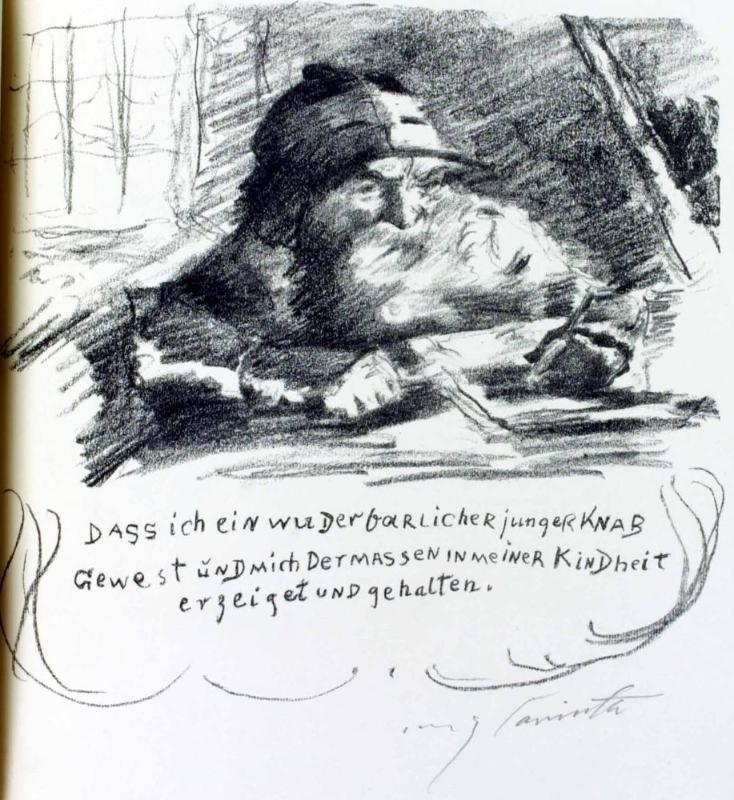 DASS ich ein wuderbarlicher junger KNAB
Gewest ŭnd mich DerMASSEN IN meiner Kindheit
erzeiget und gehalten.